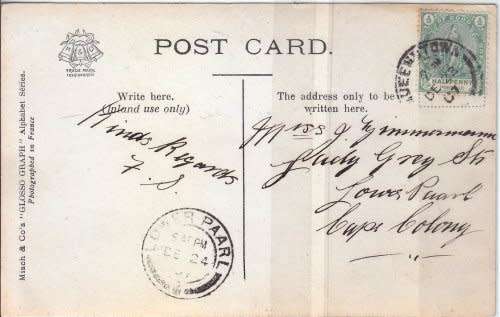 POST CARD.
TRADE MARK
Misch & Co's "GLOSSO GRAPH" Alphabet Series.
Photographed in France
Write here.
(Inland use only)
The address only to be
written here.
HALF PENNY
QUEENSTOWN
DE
07
Kinds Regards
F. S
Miss J Zimmermann
Lady Grey Str
Lower Paarl
Cape Colony
LOWER PAARL
PM
DE 24
07